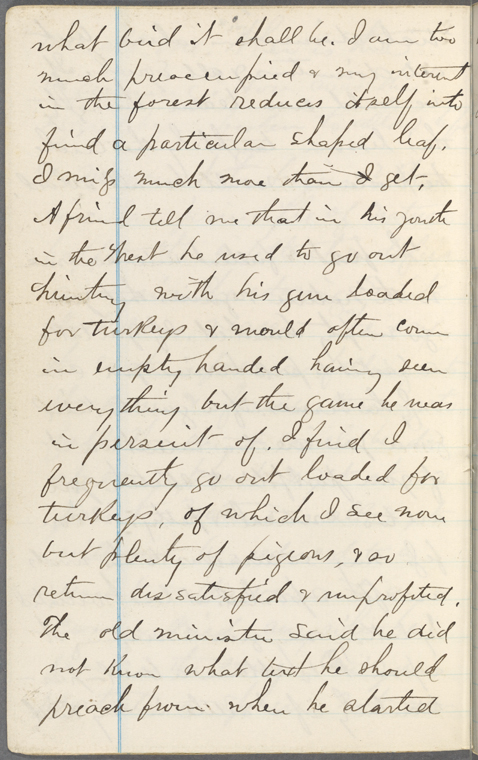 what bird it shall be. I am too
much preoccupied & my interest
in the forest reduces itself into
find a particular shaped leaf.
I miss much more than I get.
A frind tell me that in his youth
in the West he used to go out
hunting with his gun loaded
for turkeys & would often come
in empty handed having seen
everything but the game he was
in persuit of. I find I
frequently go out loaded for
turkeys, of which I see none
but plenty of pigeons, & so
return dissatisfied & unprofited.
The old minister said he did
not know what text he should
preach from when he started